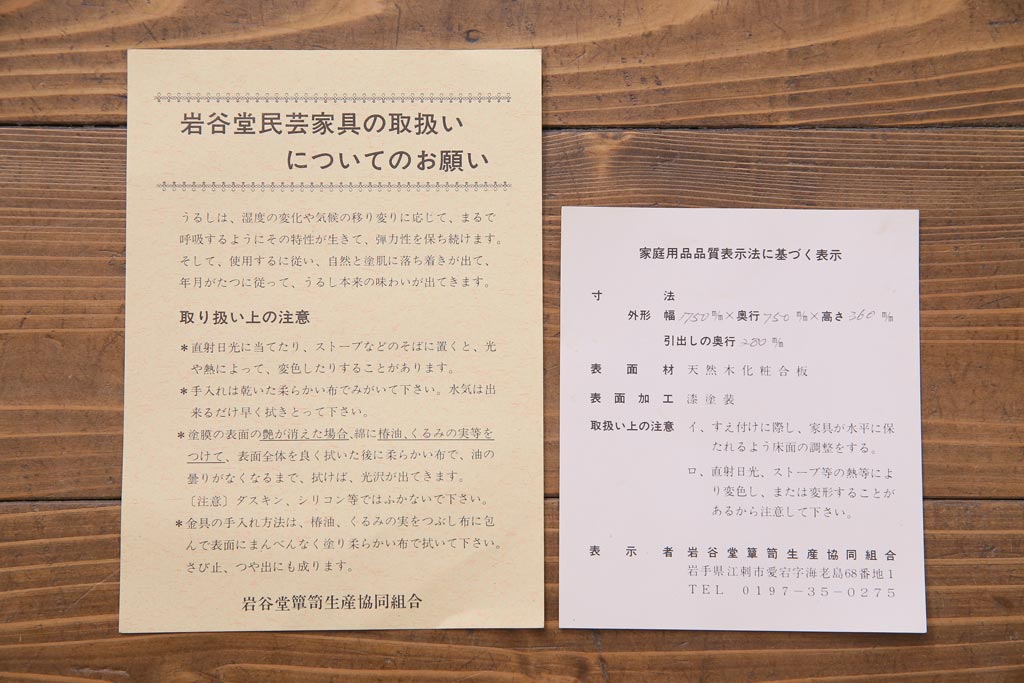 岩谷堂民芸家具の取扱い
についてのお願い
うるしは、湿度の変化や気候の移り変りに応じて、まるで
呼吸するようにその特性が生きて、弾力性を保ち続けます。
そして、使用するに従い、自然と塗肌に落ち着きが出て、
年月がたつに従って、うるし本来の味わいが出てきます。
取り扱い上の注意
*直射日光に当てたり、ストーブなどのそばに置くと、光
や熱によって、変色したりすることがあります。
*手入れは乾いた柔らかい布でみがいて下さい。水気は出
来るだけ早く拭きとって下さい。
*塗膜の表面の艶が消えた場合、綿に椿油、くるみの実等を
つけて、表面全体を良く拭いた後に柔らかい布で、油の
曇りがなくなるまで、拭けば、光沢が出てきます。
〔注意〕ダスキン、シリコン等ではふかないで下さい。
*金具の手入れ方法は、椿油、くるみの実をつぶし布に包
んで表面にまんべんなく塗り柔らかい布で拭いて下さい。
さび止、つや出にも成ります。
岩谷堂簞笥生産協同組合
家庭用品品質表示法に基づく表示
寸法
外形 幅 1750 m/m×奥行 750 m/m×高さ 360 m/m
引出しの奥行 280 m/m
表面材 天然木化粧合板
表面加工 漆塗装
取扱い上の注意 イ、すえ付けに際し、家具が水平に保
たれるよう床面の調整をする。
ロ、直射日光、ストーブ等の熱等によ
り変色し、または変形することが
あるから注意して下さい。
表示者 岩谷堂簞笥生産協同組合
岩手県江刺市愛宕字海老島68番地1
TEL 0197-35-0275